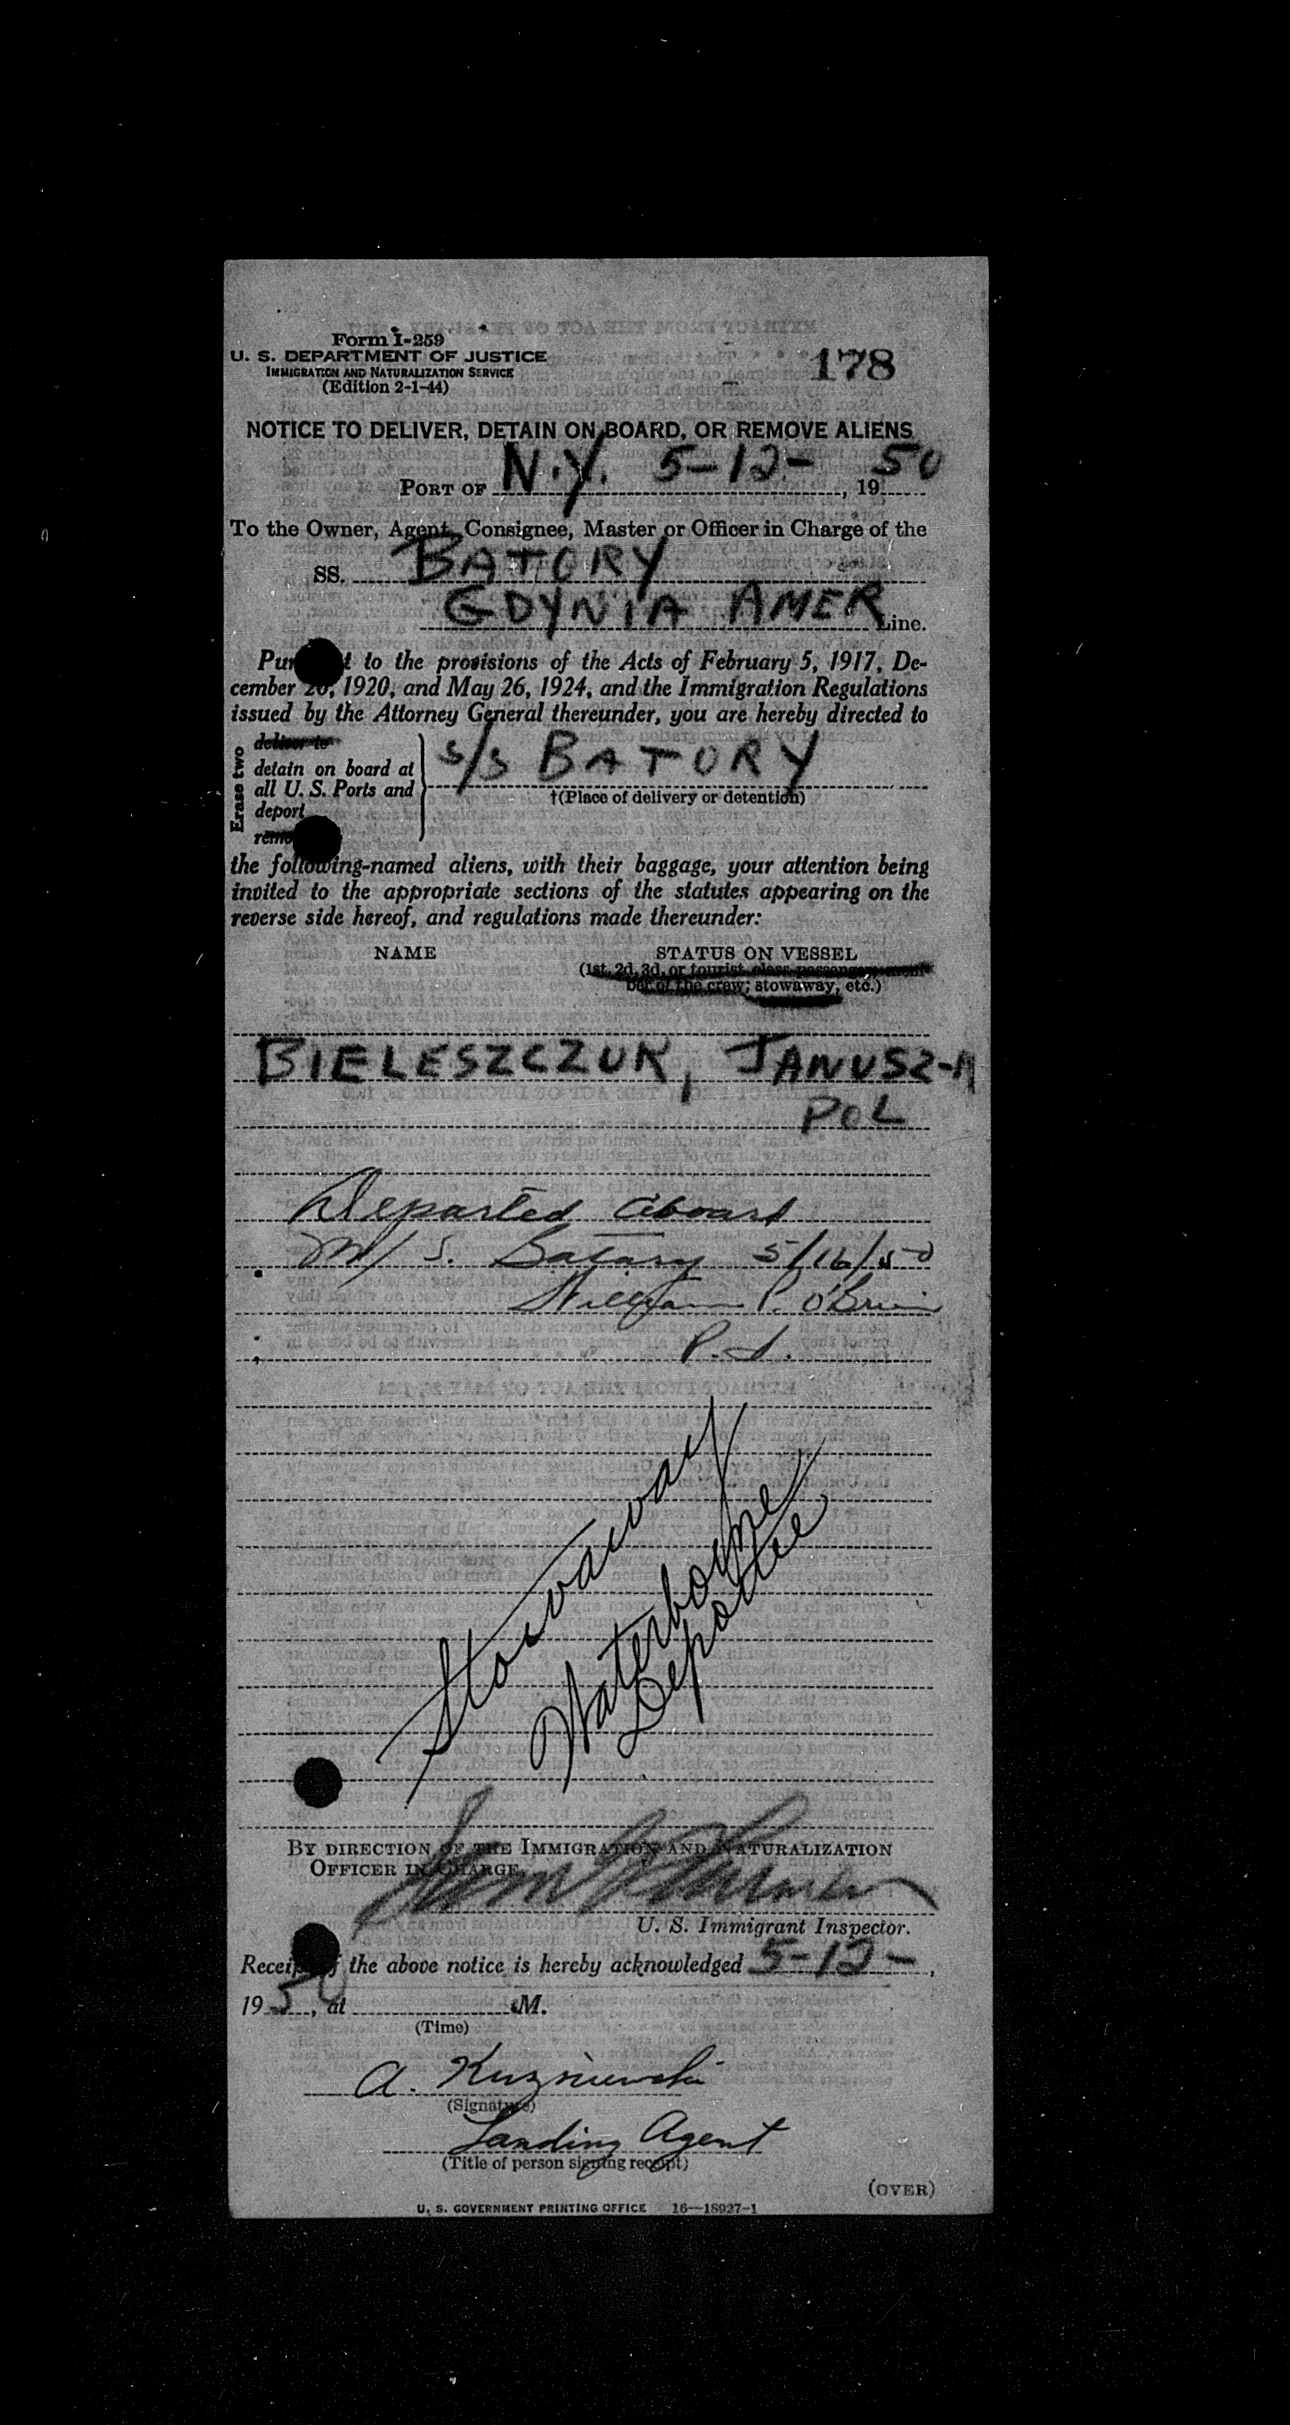 Form I-259
U. S. DEPARTMENT OF JUSTICE
IMMIGRATION AND NATURALIZATION SERVICE
(Edition 2-1-44)
178
NOTICE TO DELIVER, DETAIN ON BOARD, OR REMOVE ALIENS
PORT OF N.Y. 5-12-, 1950
To the Owner, Agent, Consignee, Master or Officer in Charge of the
SS. BATORY
GDYNIA AMER Line.
to the provisions of the Acts of February 5, 1917, De-
cember 20, 1920, and May 26, 1924, and the Immigration Regulations
issued by the Attorney General thereunder, you are hereby directed to
Erase two
deliver to
detain on board at
all U. S. Ports and
deport
s/s BATORY
†(Place of delivery or detention)
the following-named aliens, with their baggage, your attention being
invited to the appropriate sections of the statutes appearing on the
reverse side hereof, and regulations made thereunder:
NAME STATUS ON VESSEL
(1st, 2d, 3d, or tourist class passenger, mem-
ber of the crew; stowaway, etc.)
BIELESZCZUK, JANUSZ-M
POL
Departed aboard
M/S. Batory 5/16/50
William P. O'Brien
P. I.
Stowaway
Waterborne
Deportee
BY DIRECTION OF THE IMMIGRATION AND NATURALIZATION
OFFICER IN CHARGE
U. S. Immigrant Inspector.
Receipt of the above notice is hereby acknowledged 5-12-,
1950, at M.
(Time)
A. Kuzniewski
(Signature)
Landing Agent
(Title of person signing receipt)
(OVER)
U. S. GOVERNMENT PRINTING OFFICE 16—18927-1